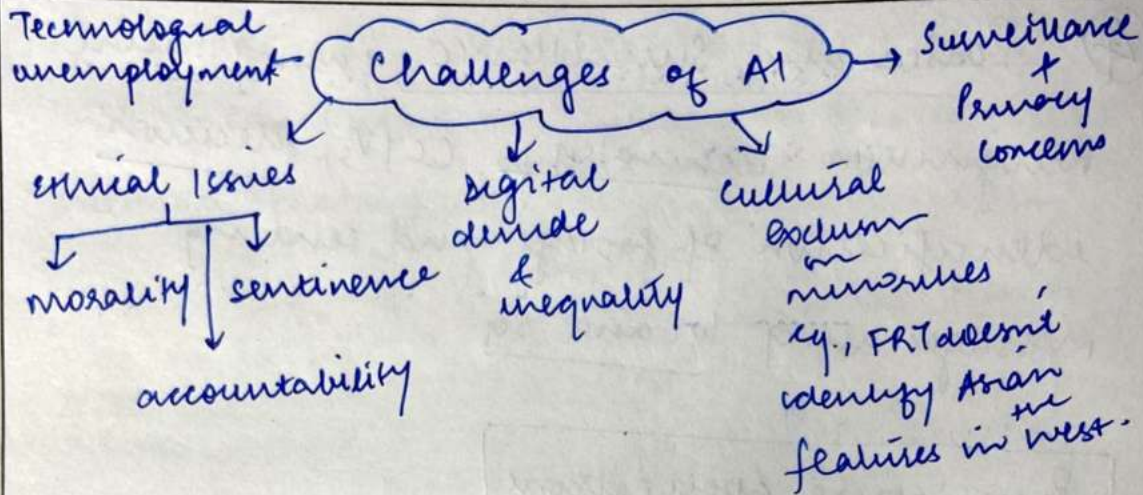 Technological
unemployment
Challenges of AI
Surveillance
+
Privacy
concerns
Ethical Issues
morality
sentinence
accountability
Digital
divide
&
inequality
Cultural
exclusion
minorities
eg., FRT doesn't
identify Asian
features in the West.